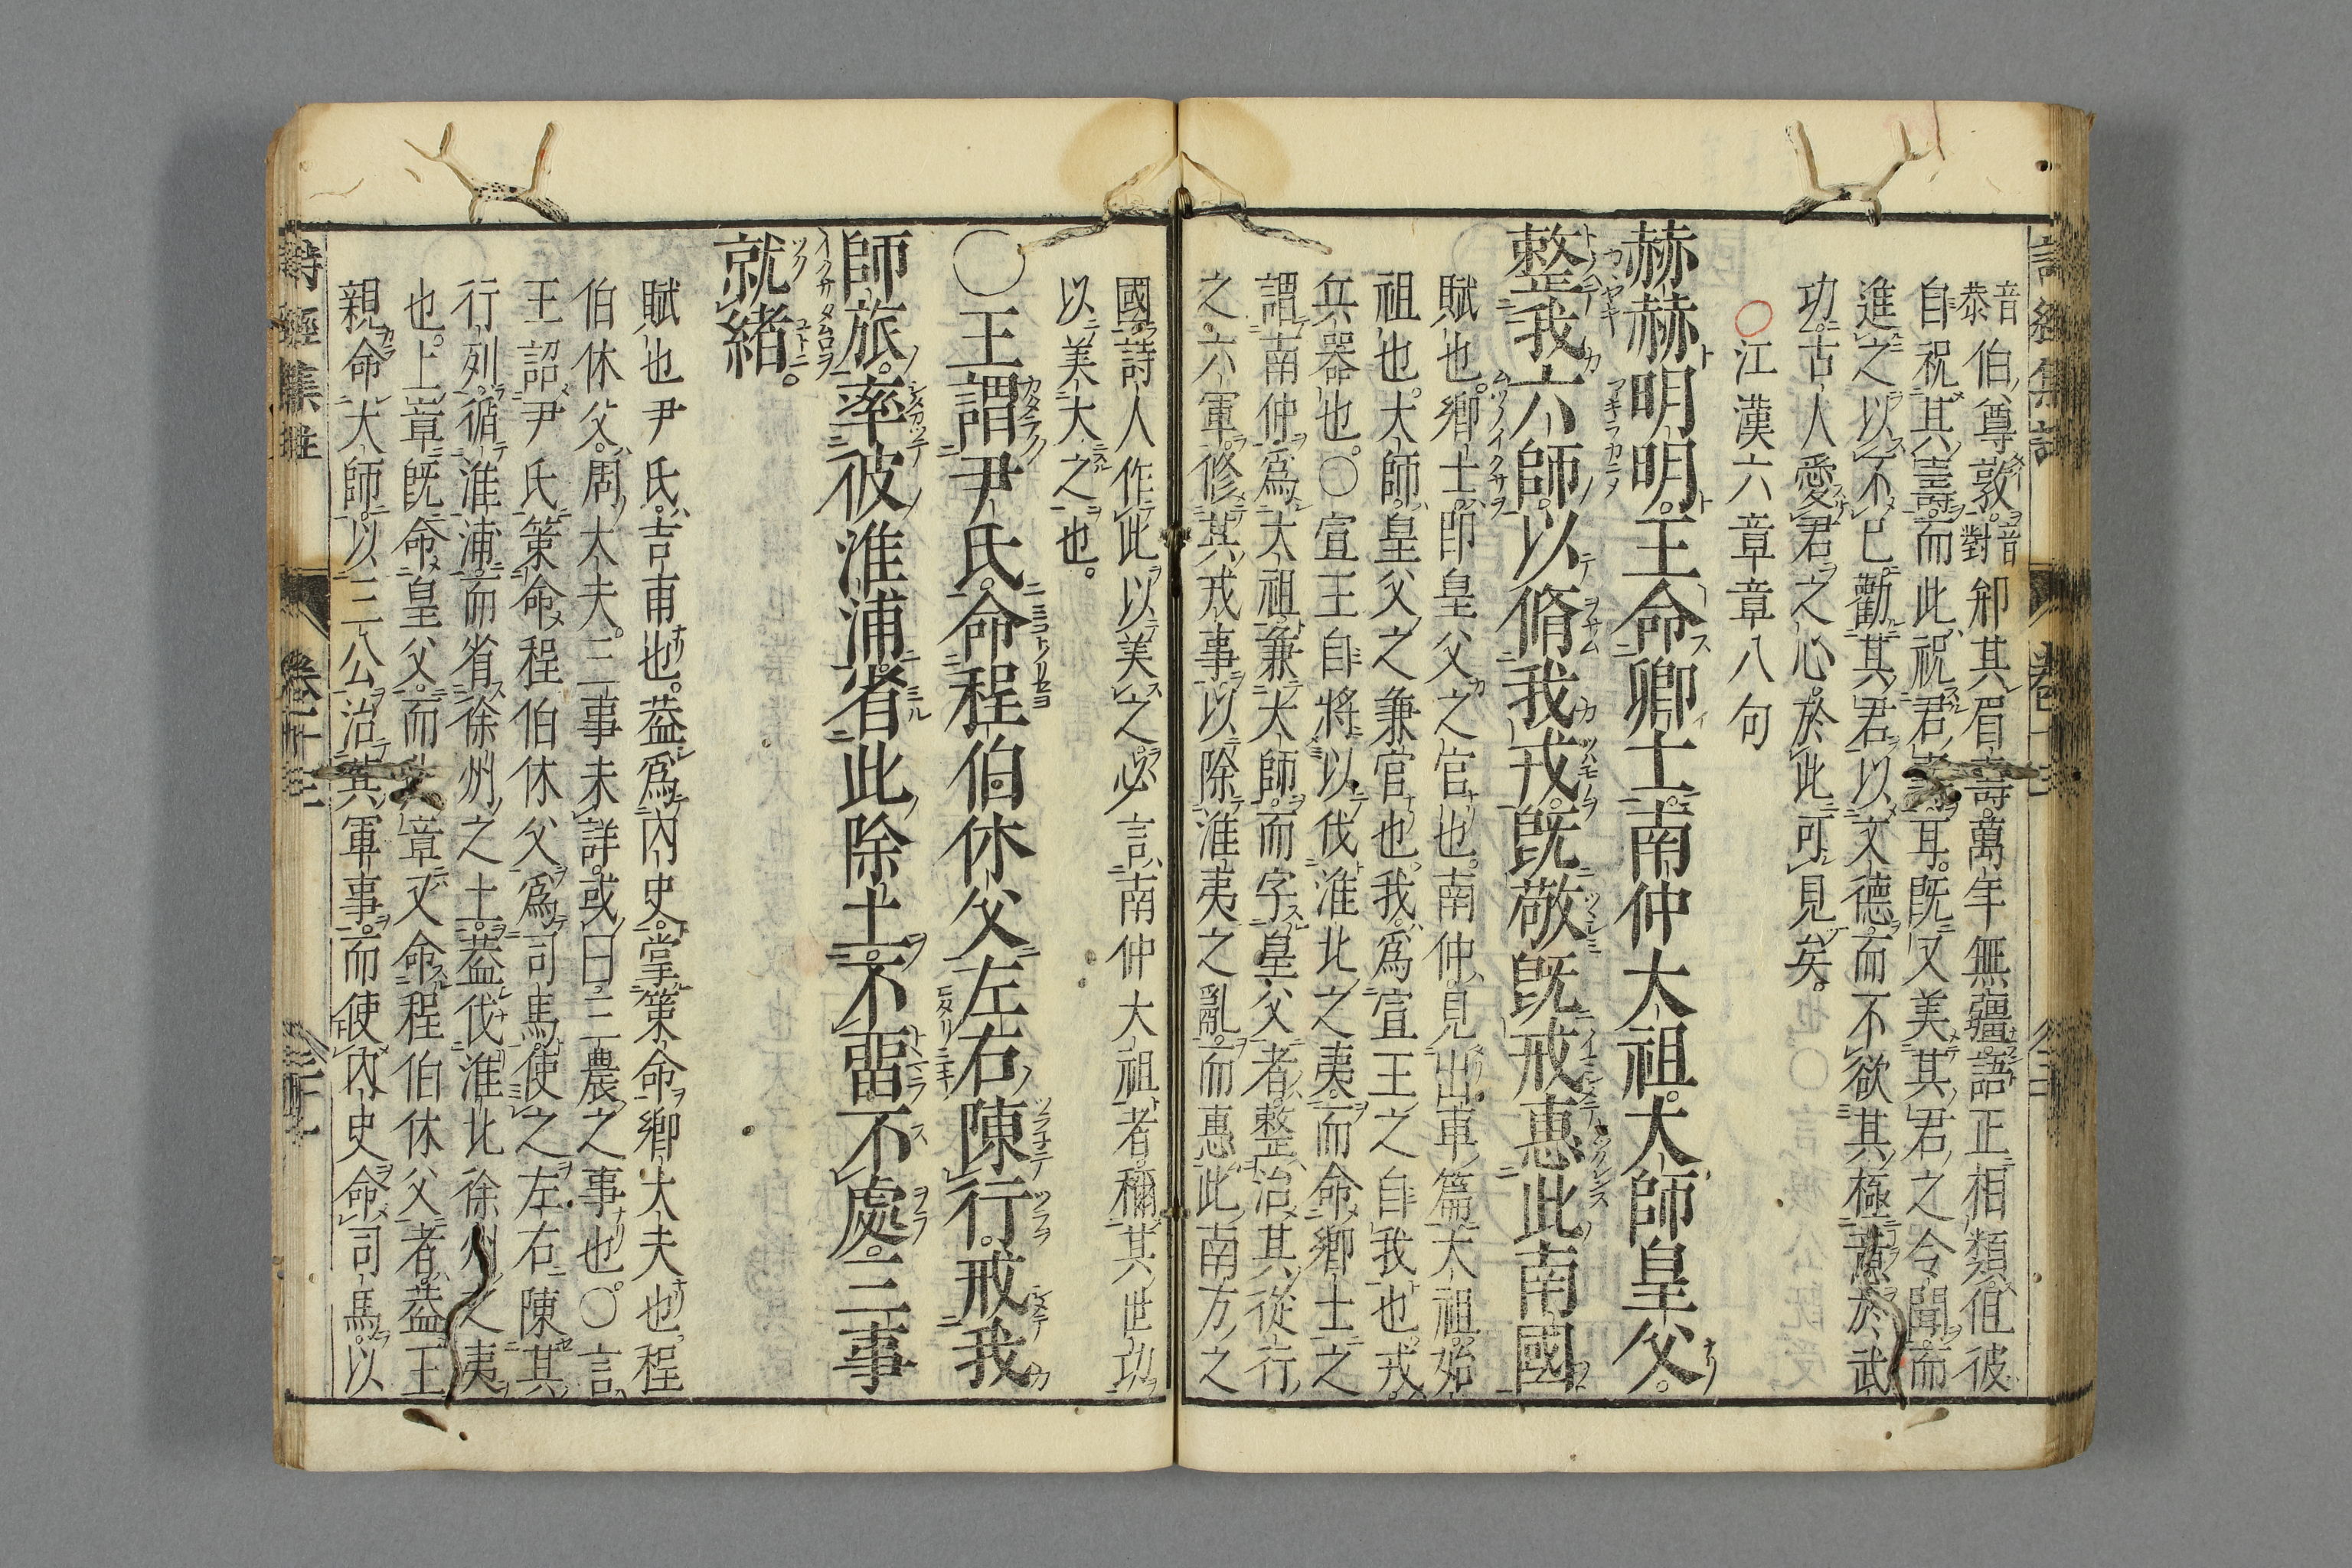 音泰伯尊敦音對郍其眉壽萬年無疆語正相類但彼
自祝其壽而此祝君壽耳既又美其君之令聞而
進之以不已勸其君以文德而不欲其極意於武
功古人愛君之心於此可見矣
〇江漢六章章八句
赫赫明明王命卿士南仲大祖大師皇父
整我六師以脩我戎既敬既戒惠此南國
賦也卿士即皇父之官也南仲見出車篇大祖始
祖也大師皇父之兼官也我爲宣王之自我也戎
兵器也〇宣王自將以伐淮北之夷而命卿士之
謂南仲爲大祖兼大師而字皇父者整治其從行
之六軍修其戎事以除淮夷之亂而惠此南方之
國詩人作此以美之必言南仲大祖者稱其世功
以美大之也
〇王謂尹氏命程伯休父左右陳行戒我
師旅率彼淮浦省此徐土不畱不處三事
就緒
賦也尹氏吉甫也葢爲內史掌策命卿大夫也程
伯休父周大夫三事未詳或曰三農之事也〇言
王詔尹氏策命程伯休父爲司馬使之左右陳其
行列循淮浦而省徐州之土葢伐淮北徐州之夷
也上章既命皇父而此章又命程伯休父者葢王
親命大師以三公治其軍事而使內史命司馬以
詩經集註 卷十三